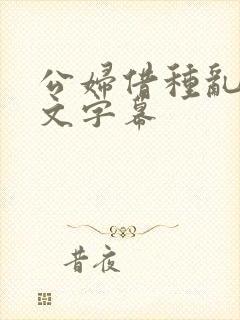 公婦借種亂
文字幕
昔夜